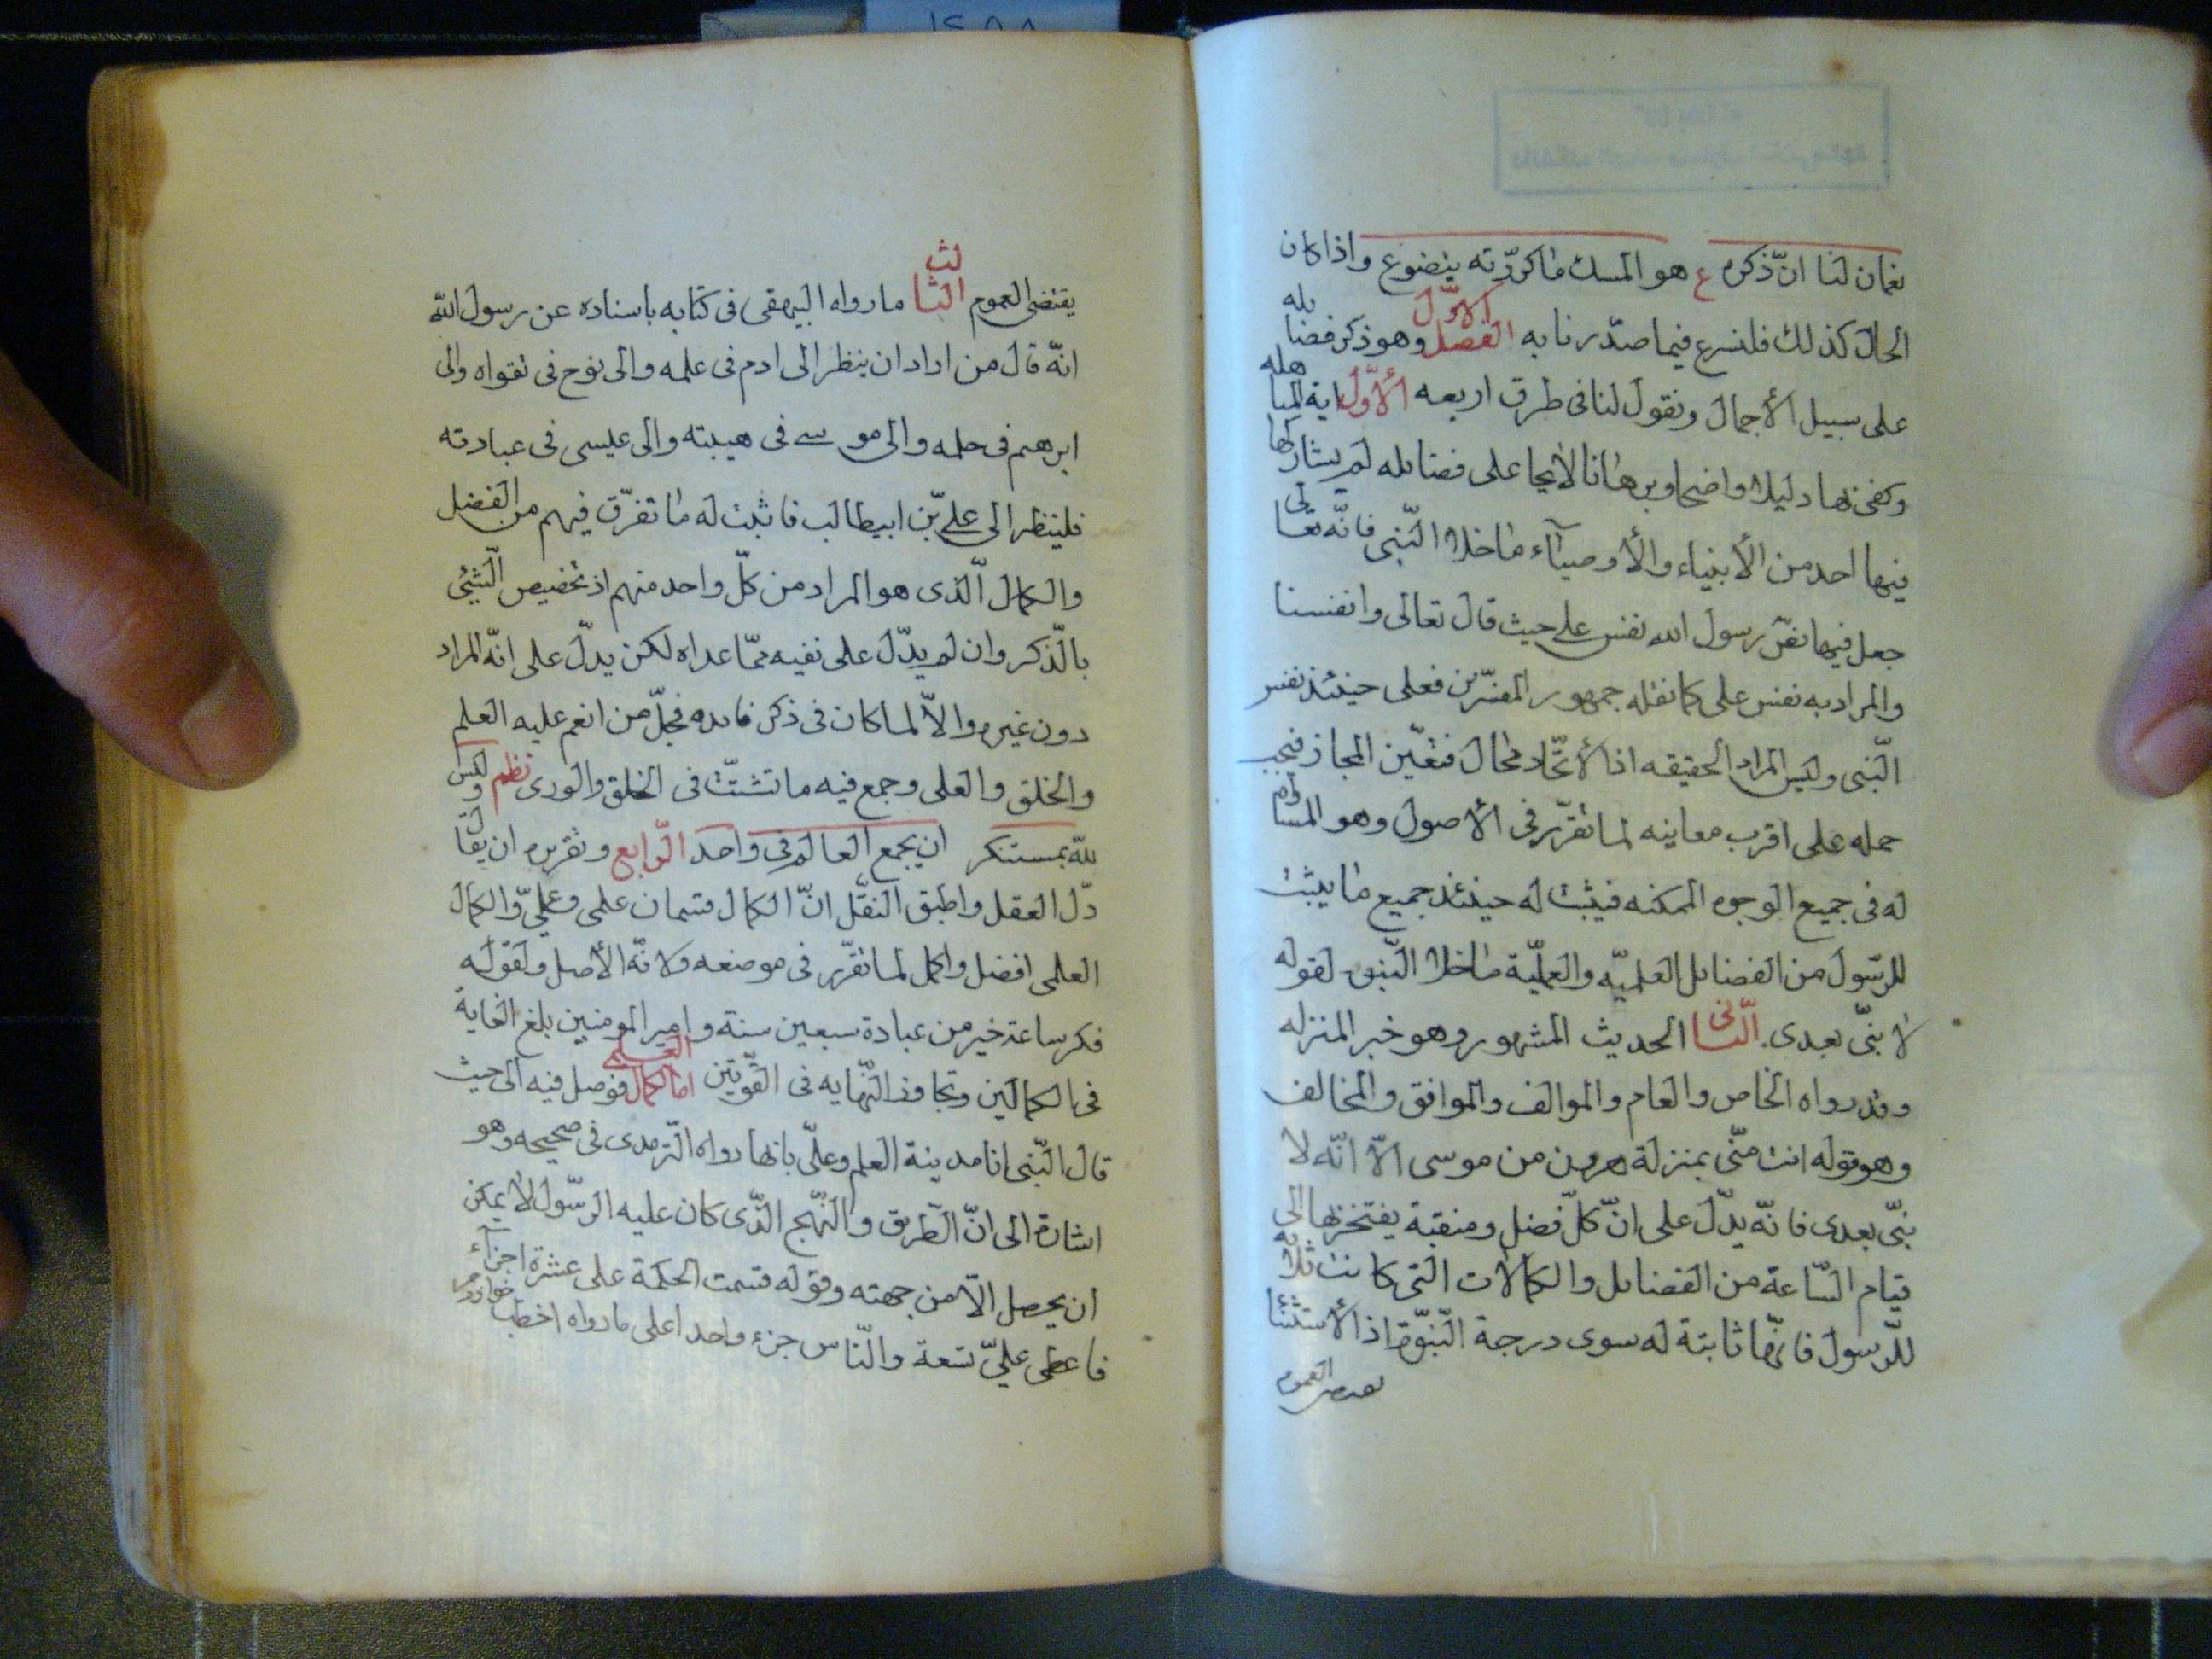 نعمان لنا انّ ذكره ع هو المسك ماكرّرته يتضوع واذا كان
الحال كذلك فلنشرع فيما صدّرنا به الفصل الاوّل وهو ذكر فضايله
على سبيل الأجمال ونقول لنا فى طرق اربعه الأوّل اية المباهله
وكفى بها دليلا واضحا وبرهانا لايحا على فضايله لم يشاركها
فيها احد من الأنبياء والأوصيآء ماخلا النّبى فانّه تعالى
جعل فيها نفس رسول الله نفس على حيث قال تعالى وانفسنا
والمراد به نفس على كما نقله جمهور المفسّرين فعلى حينئذ نفس
النّبى وليس المراد الحقيقه اذ الأتّحاد محال فتعّين المجاز فيجب
حمله على اقرب معاينه لما تقرّر فى الأصول وهو المساوام
له فى جميع الوجوه الممكنه فيثبت له حينئذ جميع مايثبت
للرّسول من الفضايل العلميّه والعمليّة ماخلا النّبوه لقوله
لا نبىّ بعدى الثّانى الحديث المشهور وهو خبر المنزله
وقد رواه الخاص والعام والموالف والموافق والمخالف
وهو قوله انت منّى بمنزلة هرون من موسى الّا انّه لا
نبىّ بعدى فانّه يدّل على انّ كلّ فضل ومنقبة يفتخر بها الى
قيام السّاعة من الفضايل والكمالات التى كانت ثلاثه
للرّسول فانّها ثابتة له سوى درجة النّبوّة اذ الأستثنا
العموم
يقتضى العموم الثالث مارواه البيهقى فى كتابه باسناده عن رسول الله
انّه قال من اراد ان ينظر الى ادم فى علمه والى نوح فى تقواه والى
ابرهيم فى حلمه والى موسى فى هيبته والى عليسى فى عبادته
فلينظر الى علىّ بن ابيطالب فاثبت له ماتفرّق فيهم من الفضل
والكمال الّذى هو المراد من كلّ واحد منهم اذ تخصيص الشّيئ
بالذّكر وان لم يدّل على نفيه عمّا عداه لكن يدّل على انّه المراد
دون غيره والاّ لما كان فى ذكره فايده فجلّ من انعم عليه العلم
والخلق والعلى وجمع فيه ماتشتّت فى الخلق والورى نظم وليس
للّه بمستنكر ان يجمع العالم فى واحد الرّابع وتقريره ان يقال
دّل العقل واطبق النّقل انّ الكمال قسمان علمى وعملىّ والكمال
العلمى افضل واكمل لما تقرّر فى موضعه ولانّه الأصل ولقوله
فكر ساعة خير من عبادة سبعين سنة وامير المومنيين بلغ الغاية
فى الكمالين وتجاوز النّهايه فى القوّتين اما الكمال العلمى فوصل فيه الى حيث
قال النّبى انا مدينة العلم وعلىّ بابها رواه التّرمدى فى صحيحه وهو
اشارة الى انّ الطّريق والنّهج الذّى كان عليه الرّسول لا يمكن
ان يحصل الاّ من جهته وقوله قسمت الحكمة على عشرة اجزآء
فاعطى علىّ تسعة والنّاس جزء واحدا على مارواه اخطب خوارزم